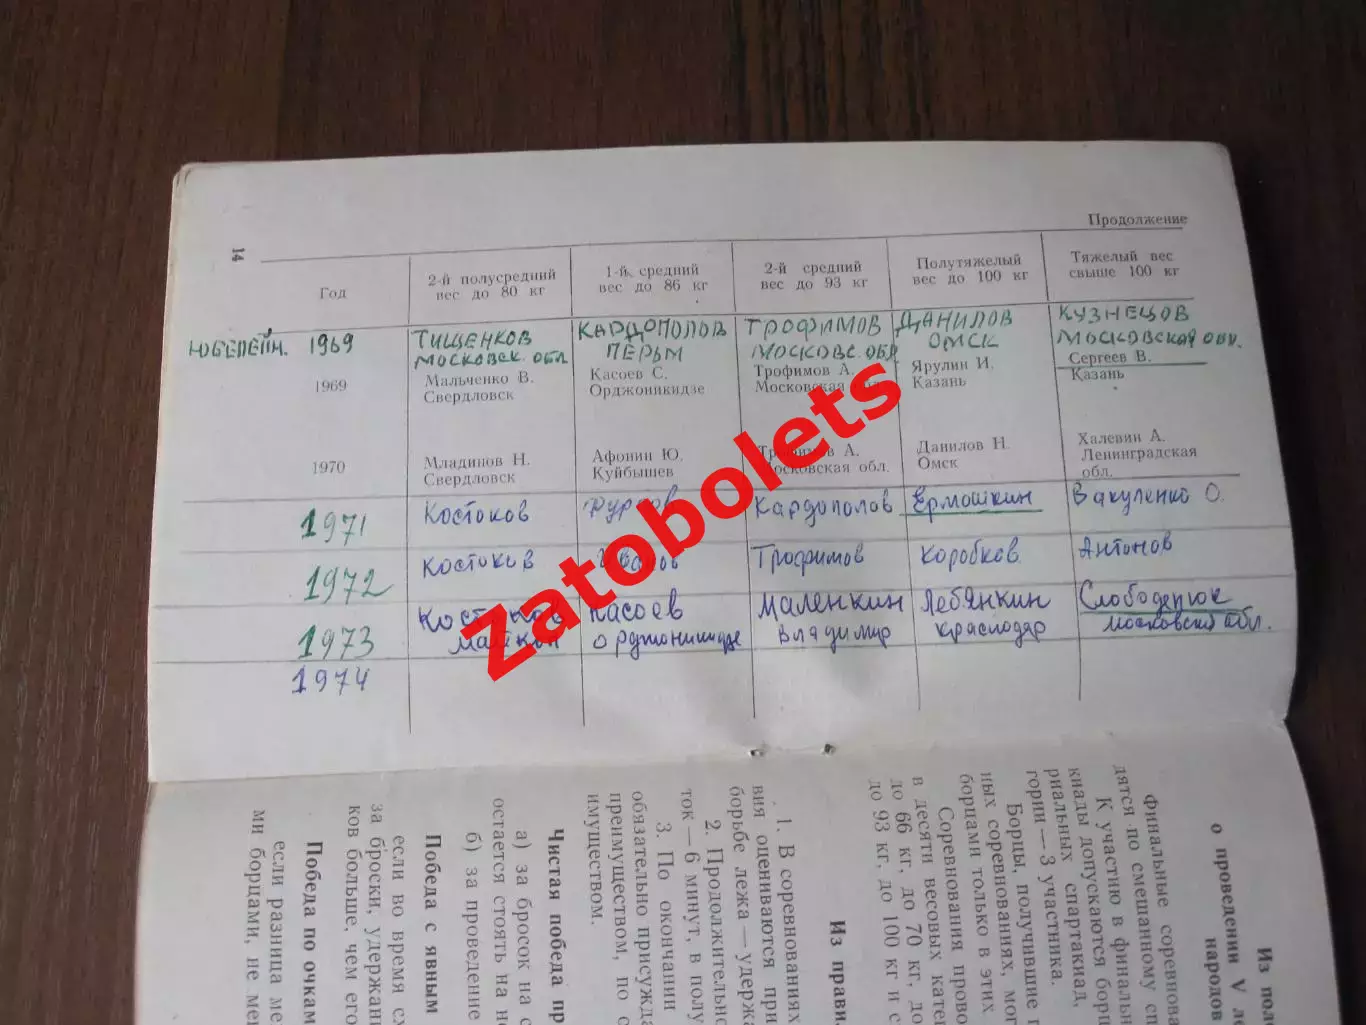 Продолжение
14
Год
2-й полусредний
вес до 80 кг
1-й средний
вес до 86 кг
2-й средний
вес до 93 кг
Полутяжелый
вес до 100 кг
Тяжелый вес
свыше 100 кг
1969
ТИЩЕНКОВ
МОСКОВСК. ОБЛ
КАРДОПОЛОВ
ПЕРЬМ
ТРОФИМОВ
МОСКОВС. ОБЛ
ДАНИЛОВ
ОМСК
КУЗНЕЦОВ
МОСКОВСКАЯ ОБЛ.
1969
Мальченко В.
Свердловск
Касоев С.
Орджоникидзе
Трофимов А.
Московская
Ярулин И.
Казань
Сергеев В.
Казань
1970
Младинов Н.
Свердловск
Афонин Ю.
Куйбышев
А.
Московская обл.
Данилов Н.
Омск
Халевин А.
Ленинградская
обл.
1971
Костоков
Кардополов
Ермошкин
Вакуленко О.
1972
Костоков
Трофимов
Коробков
Антонов
1973
Касоев
Орджоникидзе
Маленкин
Владимир
Лебянкин
Краснодар
Слободенюк
Московская обл.
1974
Из
о проведении V
народов
финальные
дятся по смешанному
К участию в
киады допускаются
риальных спартакиад,
гории — 3 участника.
Борцы, получившие
ных соревнованиях,
борцами только в этих
Соревнования
в десяти весовых
до 66 кг, до 70 кг, до
до 93 кг, до 100 кг и
Из
1. В соревнованиях
вия оцениваются при
борьбе лежа —
2.
ток — 6 минут, в
3. По окончании
обязательно
преимуществом, по
имуществом.
Чистая победа
а) за бросок на
остается стоять на
б) за проведение
Победа с явным
если во время
за броски,
ков больше, чем его
Победа по очкам
если разница
ми борцами, не